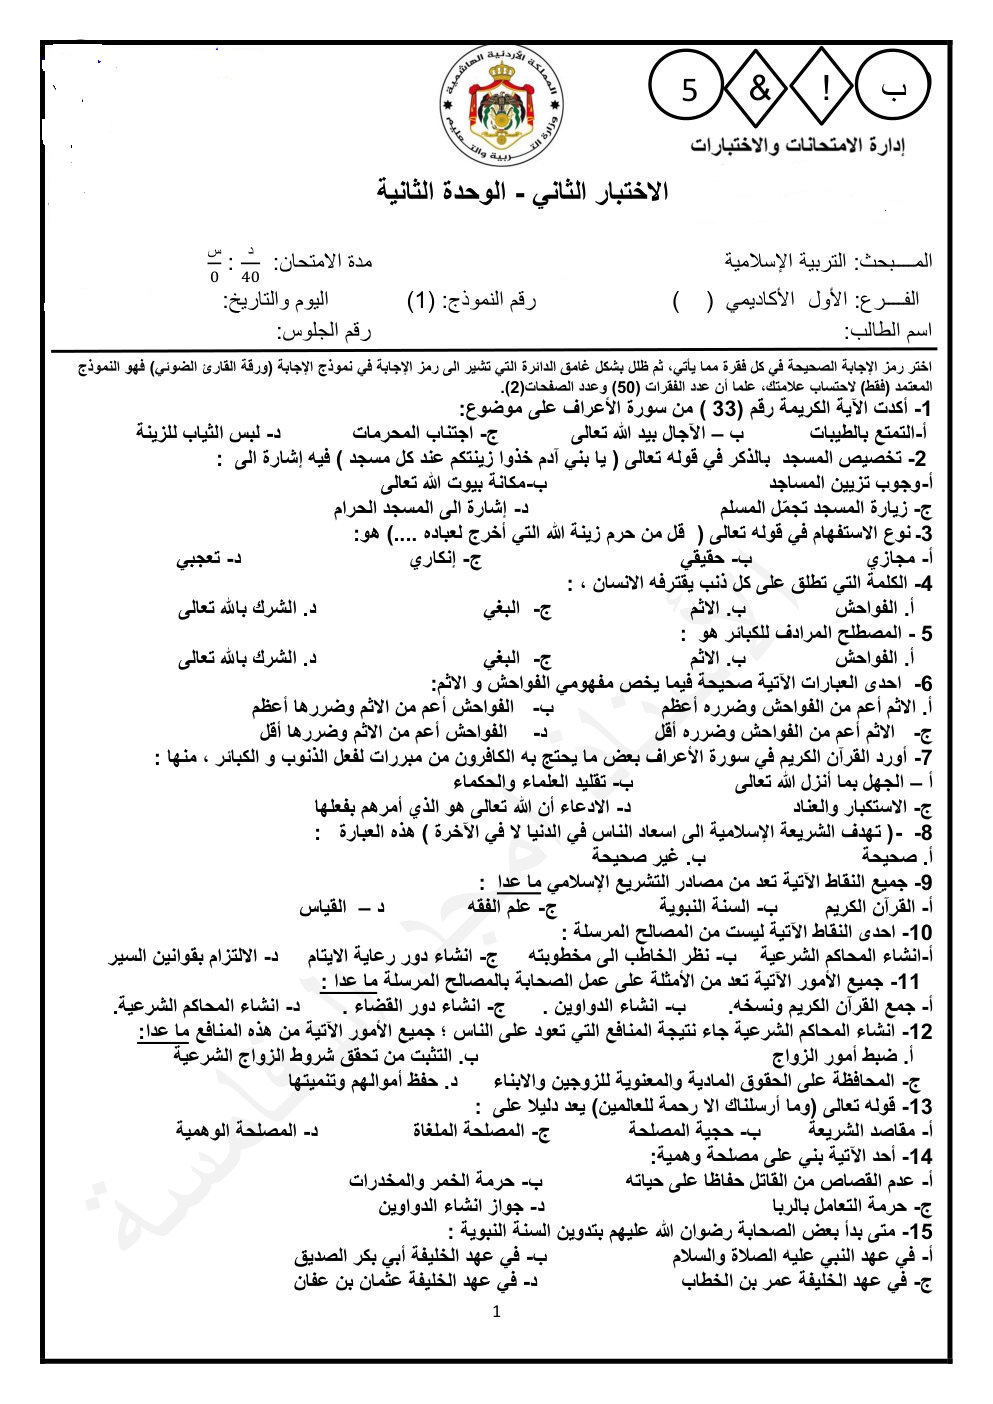 ب ! & 5
المملكة الأردنية الهاشمية
وزارة التربية والتعليم
إدارة الامتحانات والاختبارات
الاختبار الثاني - الوحدة الثانية
المـــبحث: التربية الإسلامية مدة الامتحان: د 40 : س 0
الفـــرع: الأول الأكاديمي ( ) رقم النموذج: (1) اليوم والتاريخ:
اسم الطالب: رقم الجلوس:
اختر رمز الإجابة الصحيحة في كل فقرة مما يأتي، ثم ظلل بشكل غامق الدائرة التي تشير الى رمز الإجابة في نموذج الإجابة (ورقة القارئ الضوئي) فهو النموذج
المعتمد (فقط) لاحتساب علامتك، علما أن عدد الفقرات (50) وعدد الصفحات(2).
1- أكدت الآية الكريمة رقم (33 ) من سورة الأعراف على موضوع:
أ-التمتع بالطيبات ب – الآجال بيد الله تعالى ج- اجتناب المحرمات د- لبس الثياب للزينة
2- تخصيص المسجد بالذكر في قوله تعالى ( يا بني آدم خذوا زينتكم عند كل مسجد ) فيه إشارة الى :
أ-وجوب تزيين المساجد ب-مكانة بيوت الله تعالى
ج- زيارة المسجد تجمّل المسلم د- إشارة الى المسجد الحرام
3- نوع الاستفهام في قوله تعالى ( قل من حرم زينة الله التي أخرج لعباده ....) هو:
أ- مجازي ب- حقيقي ج- إنكاري د- تعجبي
4- الكلمة التي تطلق على كل ذنب يقترفه الانسان ، :
أ. الفواحش ب. الاثم ج- البغي د. الشرك بالله تعالى
5 - المصطلح المرادف للكبائر هو :
أ. الفواحش ب. الاثم ج- البغي د. الشرك بالله تعالى
6- احدى العبارات الآتية صحيحة فيما يخص مفهومي الفواحش و الاثم:
أ. الاثم أعم من الفواحش وضرره أعظم ب- الفواحش أعم من الاثم وضررها أعظم
ج- الاثم أعم من الفواحش وضرره أقل د- الفواحش أعم من الاثم وضررها أقل
7- أورد القرآن الكريم في سورة الأعراف بعض ما يحتج به الكافرون من مبررات لفعل الذنوب و الكبائر ، منها :
أ – الجهل بما أنزل الله تعالى ب- تقليد العلماء والحكماء
ج- الاستكبار والعناد د- الادعاء أن الله تعالى هو الذي أمرهم بفعلها
8- -( تهدف الشريعة الإسلامية الى اسعاد الناس في الدنيا لا في الآخرة ) هذه العبارة :
أ. صحيحة ب. غير صحيحة
9- جميع النقاط الآتية تعد من مصادر التشريع الإسلامي ما عدا :
أ- القرآن الكريم ب- السنة النبوية ج- علم الفقه د – القياس
10- احدى النقاط الآتية ليست من المصالح المرسلة :
أ-انشاء المحاكم الشرعية ب- نظر الخاطب الى مخطوبته ج- انشاء دور رعاية الايتام د- الالتزام بقوانين السير
11- جميع الأمور الآتية تعد من الأمثلة على عمل الصحابة بالمصالح المرسلة ما عدا :
أ- جمع القرآن الكريم ونسخه. ب- انشاء الدواوين . ج- انشاء دور القضاء . د- انشاء المحاكم الشرعية.
12- انشاء المحاكم الشرعية جاء نتيجة المنافع التي تعود على الناس ؛ جميع الأمور الآتية من هذه المنافع ما عدا:
أ. ضبط أمور الزواج ب. التثبت من تحقق شروط الزواج الشرعية
ج- المحافظة على الحقوق المادية والمعنوية للزوجين والابناء د. حفظ أموالهم وتنميتها
13- قوله تعالى (وما أرسلناك الا رحمة للعالمين) يعد دليلا على :
أ- مقاصد الشريعة ب- حجية المصلحة ج- المصلحة الملغاة د- المصلحة الوهمية
14- أحد الآتية بني على مصلحة وهمية:
أ- عدم القصاص من القاتل حفاظا على حياته ب- حرمة الخمر والمخدرات
ج- حرمة التعامل بالربا د- جواز انشاء الدواوين
15- متى بدأ بعض الصحابة رضوان الله عليهم بتدوين السنة النبوية :
أ- في عهد النبي عليه الصلاة والسلام ب- في عهد الخليفة أبي بكر الصديق
ج- في عهد الخليفة عمر بن الخطاب د- في عهد الخليفة عثمان بن عفان
1